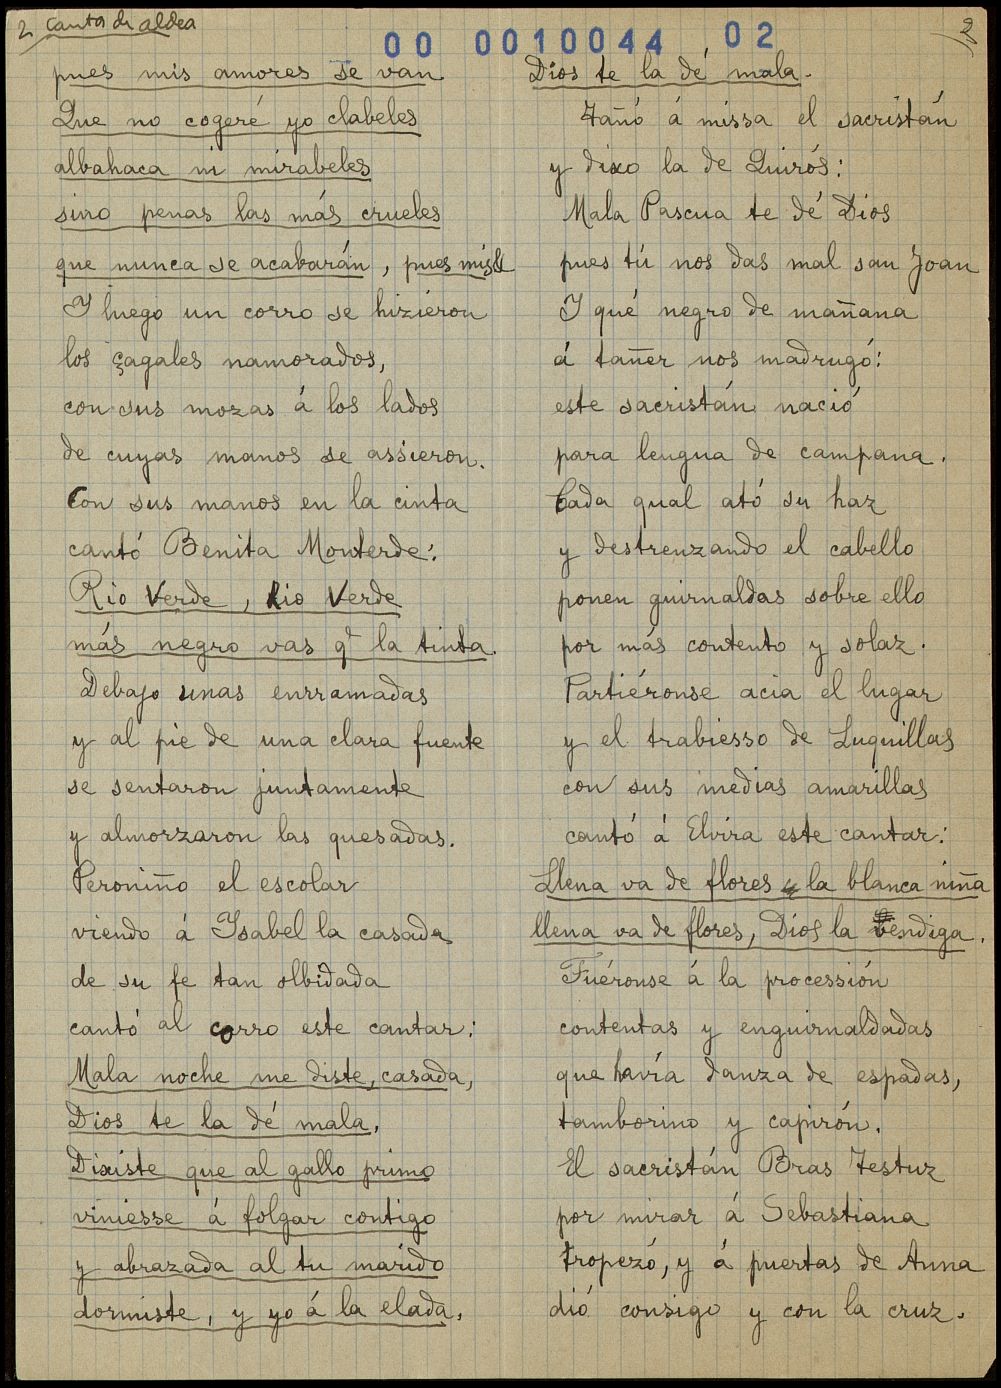 2 Canta de aldea
00 0010044 02
2
pues mis amores se van
Que no cogeré yo clabeles
albahaca ni mirabeles
sino penas las más crueles
que nunca se acabarán, pues mis &
Y luego un corro se hizieron
los çagales namorados,
con sus mozas á los lados
de cuyas manos se assieron.
Con sus manos en la cinta
cantó Benita Monterde:
Rio Verde, Rio Verde
más negro vas q^e la tinta.
Debajo unas enrramadas
y al pie de una clara fuente
se sentaron juntamente
y almorzaron las quesadas.
Peroniño el escolar
viendo á Ysabel la casada
de su fe tan olbidada
cantó al corro este cantar:
Mala noche me diste, casada,
Dios te la dé mala,
Dixiste que al gallo primo
viniesse á folgar contigo
y abrazada al tu marido
dormiste, y yo á la elada,
Dios te la dé mala.
Tañó á missa el sacristán
y dixo la de Quirós:
Mala Pascua te dé Dios
pues tú nos das mal san Joan
Y qué negro de mañana
á tañer nos madrugó:
este sacristán nació
para lengua de campana.
Cada qual ató su haz
y destrenzando el cabello
ponen guirnaldas sobre ello
por más contento y solaz.
Partiéronse acia el lugar
y el trabiesso de Luquillas
con sus medias amarillas
cantó á Elvira este cantar:
Llena va de flores la blanca niña
llena va de flores, Dios la bendiga.
Fuéronse á la processión
contentas y enguirnaldadas
que havía danza de espadas,
tamborino y capirón.
El sacristán Bras Testuz
por mirar á Sebastiana
tropezó, y á puertas de Anna
dió consigo y con la cruz.